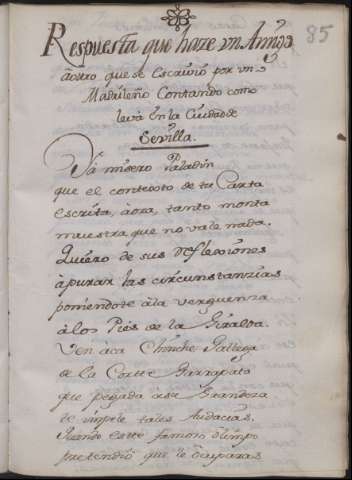 85
Respuesta que haze un Amigo
a otro que se Escrivio por un
Madrileño Contando como
leva En la Ciudad de
Sevilla.
misero Paladin
que el contexto de tu Carta
escrita, aora, tanto monta
muestra que no vale nada.
Quiero de sus reflecciones
àpurar las circunstanzias
poniendote àla verguenza
à los Pies de la Giralda.
Ven àca Chinche Gallega
de la Corte Garrapato
que pegada a su Grandeza
te imple tales Audacias.
Quando este famoso olimpo
pretendiò que le ocuparas